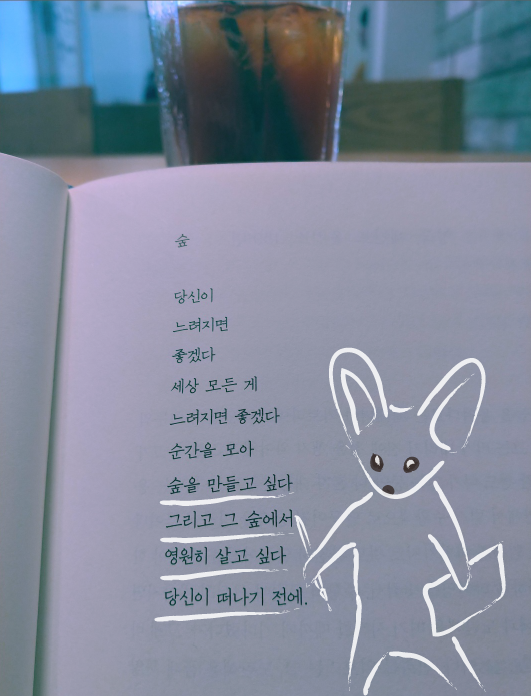 숲
당신이
느려지면
좋겠다
세상 모든 게
느려지면 좋겠다
순간을 모아
숲을 만들고 싶다
그리고 그 숲에서
영원히 살고 싶다
당신이 떠나기 전에.